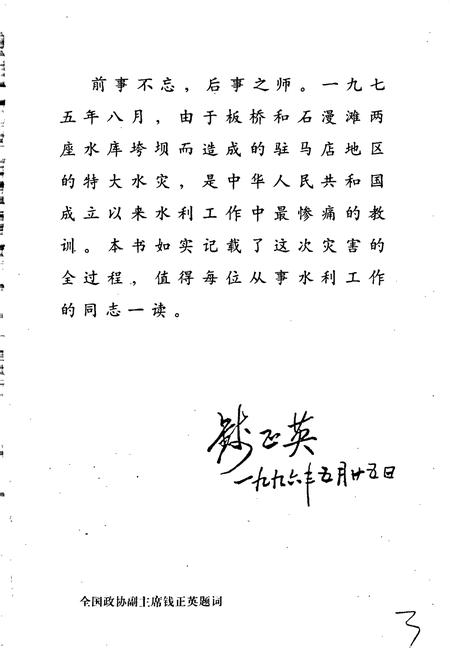 前事不忘，后事之师。一九七
五年八月，由于板桥和石漫滩两
座水库垮坝而造成的驻马店地区
的特大水灾，是中华人民共和国
成立以来水利工作中最惨痛的教
训。本书如实记载了这次灾害的
全过程，值得每位从事水利工作
的同志一读。
钱正英
一九九六年五月廿五日
全国政协副主席钱正英题词
3